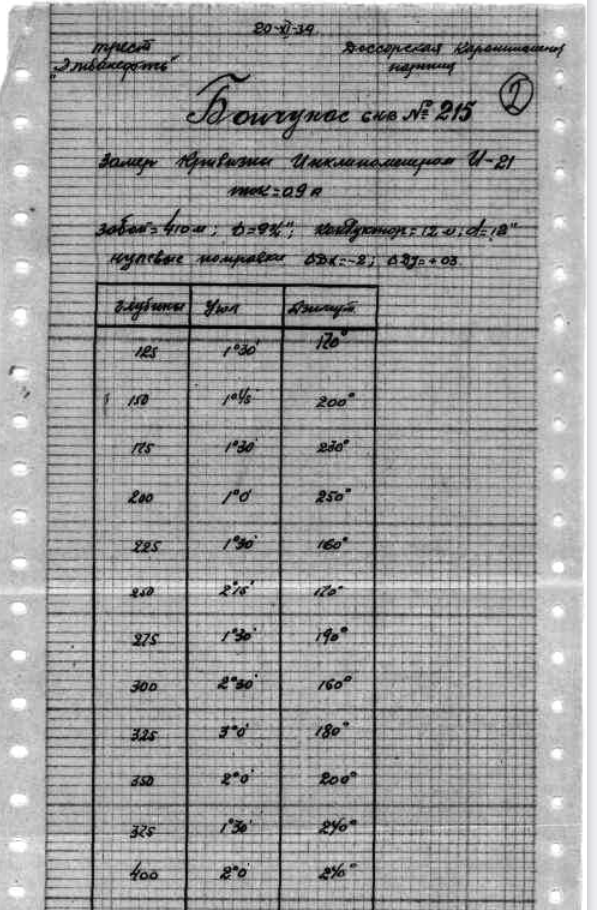 20-XI-34
трест
"Эмбанефть"
Доссорская Каротажная
партия
I
Бойчунас скв № 215
Замер Кривизны Инклинометром И-21
ток = 0.9 А
Забой = 410 м; D = 9¾"; Кондуктор = 12 м; d = 18"
нулевые поправки ΔDx = -2; ΔDy = +03
Глубины Угол Азимут
125 1°30' 170°
150 1°45' 200°
175 1°30' 230°
200 1°0' 250°
225 1°30' 160°
250 2°15' 170°
275 1°30' 190°
300 2°30' 160°
325 3°0' 180°
350 2°0' 200°
375 1°30' 240°
400 2°0' 240°